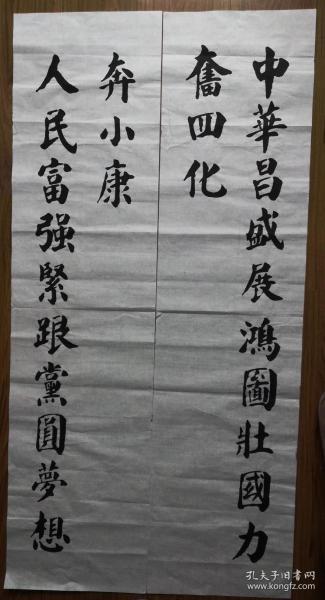 中華昌盛展鴻圖壯國力
奮四化
人民富强緊跟黨圓夢想
奔小康
孔夫子旧书网